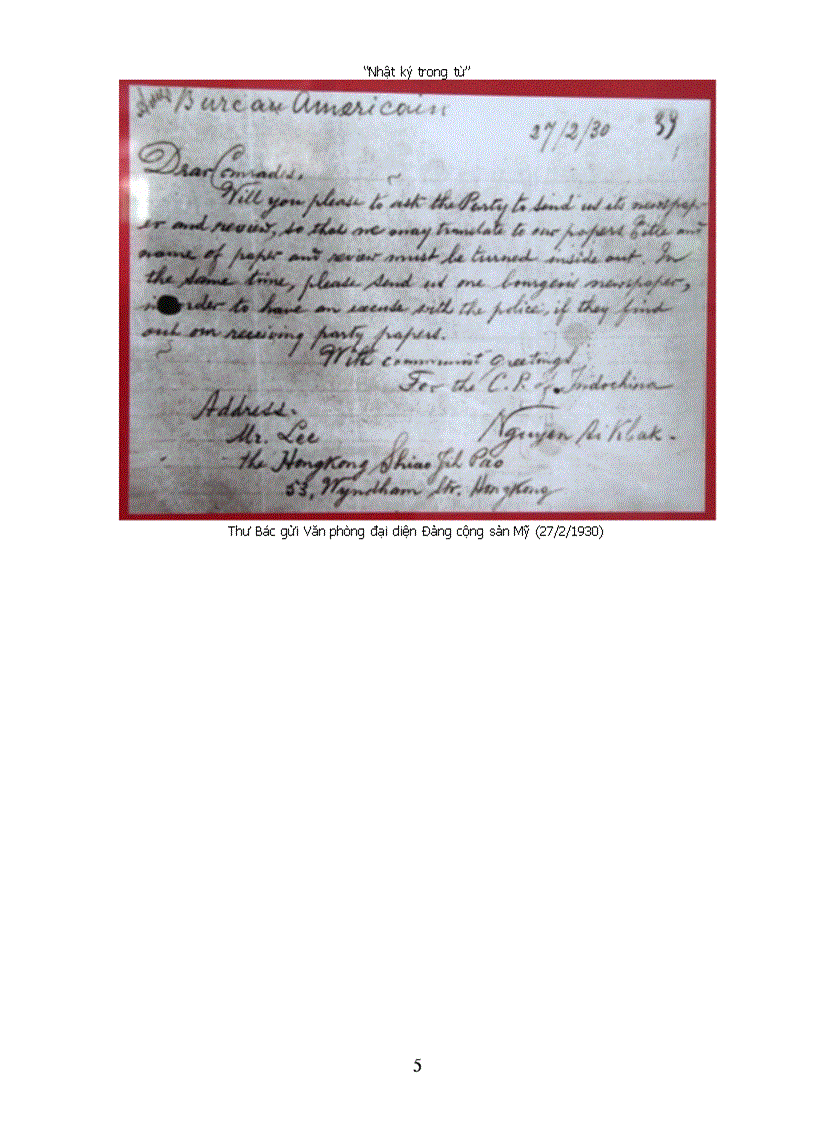 "Nhật ký trong tù"
Bureau Américain
27/2/30 39
Dear Comrades,
Will you please to ask the Party to send us its newspap-
er and review, so that we may translate to our papers Title and
name of paper and review must be turned inside out. In
the same time, please send us one bourgeois newspaper,
in order to have an excuse with the police, if they find
out our receiving party papers.
With communist greetings
For the C.P. of Indochina
Address.
Mr. Lee Nguyen Ai Klak.
the HongKong Shiao Jil Pao
53, Wyndham Str. HongKong
Thư Bác gửi Văn phòng đại diện Đảng cộng sản Mỹ (27/2/1930)
5